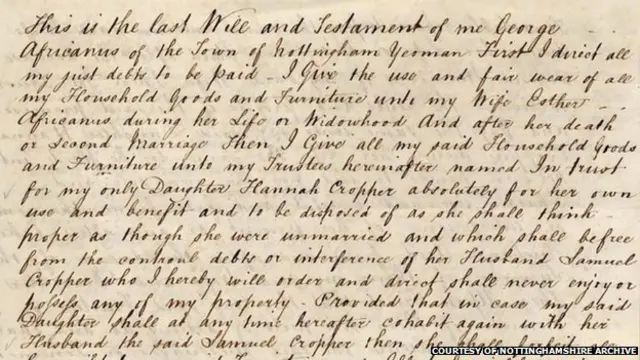 This is the last Will and Testament of me George
Africanus of the Town of Nottingham Yeoman First I direct all
my just debts to be paid - I Give the use and fair wear of all
my Household Goods and Furniture unto my Wife Esther
Africanus during her Life or Widowhood And after her death
or Second Marriage Then I Give all my said Household Goods
and Furniture unto my Trustees hereinafter named In trust
for my only Daughter Hannah Cropper absolutely for her own
use and benefit and to be disposed of as she shall think
proper as though she were unmarried and which shall be free
from the controul debts or interference of her Husband Samuel
Cropper who I hereby will order and direct shall never enjoy or
possess any of my property - Provided that in case my said
Daughter shall at any time hereafter cohabit again with her
Husband the said Samuel Cropper then she shall
COURTESY OF NOTTINGHAMSHIRE ARCHIVE